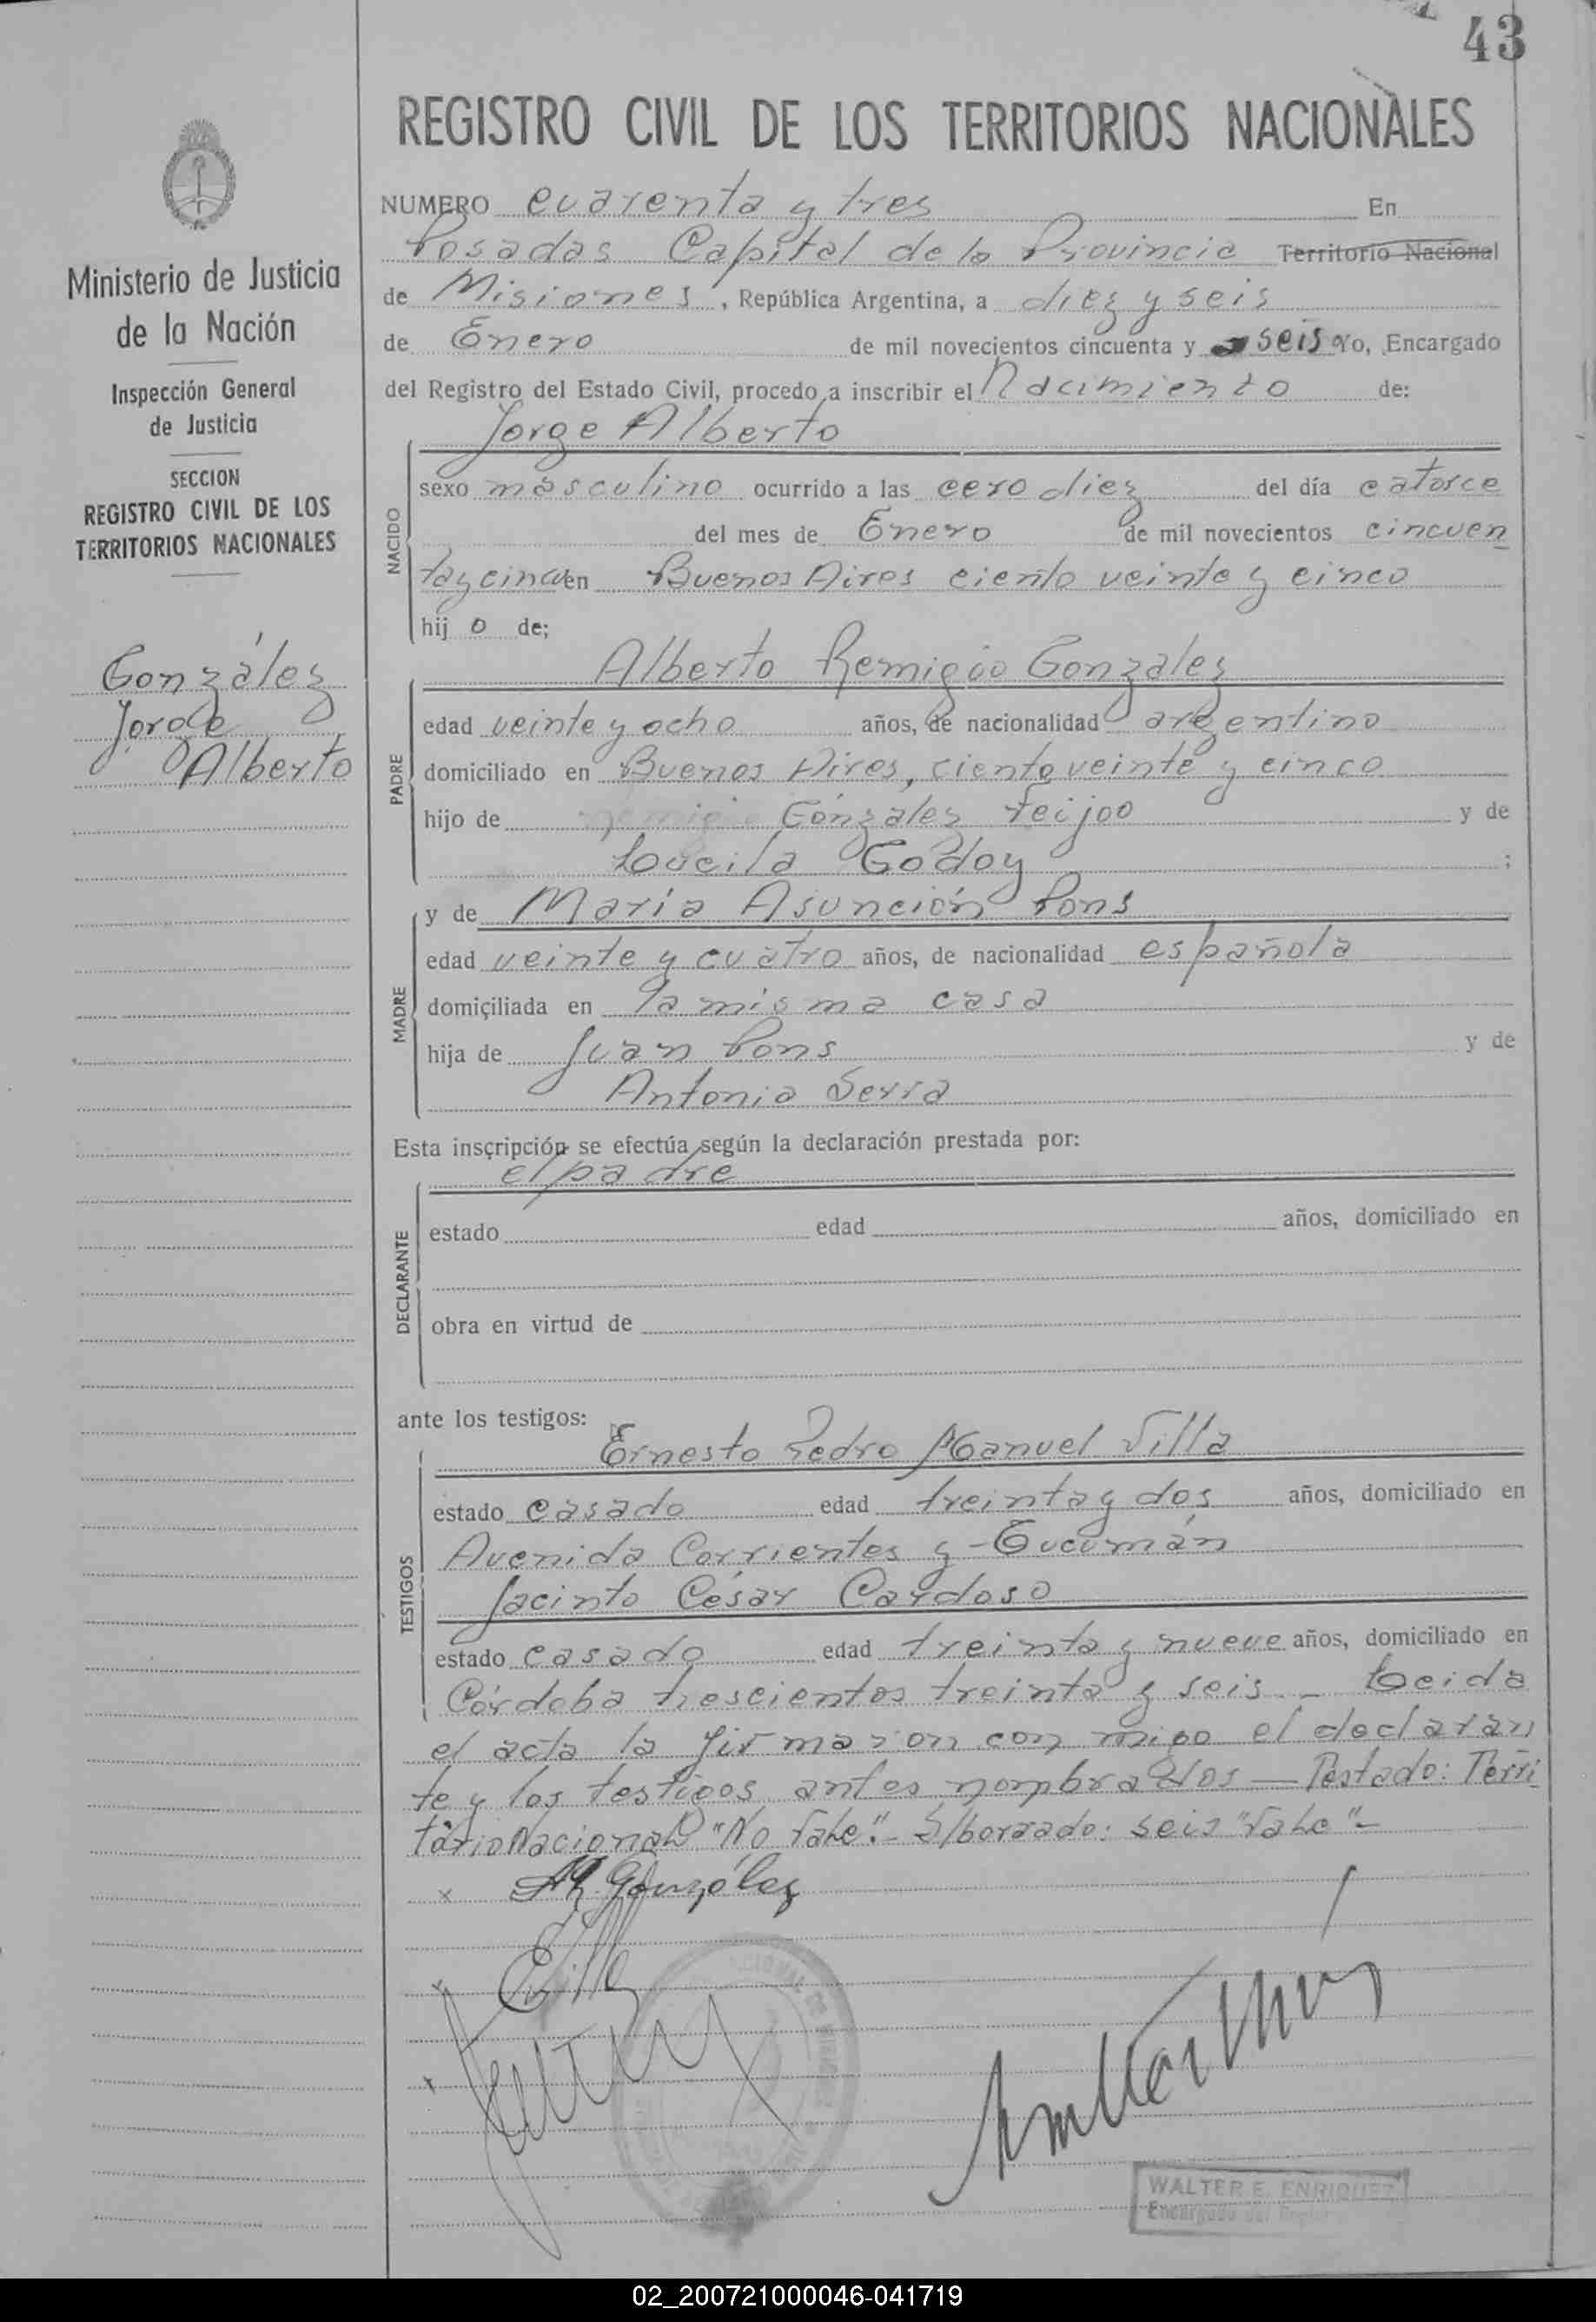 43
REGISTRO CIVIL DE LOS TERRITORIOS NACIONALES
Ministerio de Justicia
de la Nación
Inspección General
de Justicia
SECCION
REGISTRO CIVIL DE LOS
TERRITORIOS NACIONALES
González
Jorge
Alberto
NUMERO cuarenta y tres En
Posadas Capital de la Provincia Territorio Nacional
de Misiones, República Argentina, a diez y seis
de Enero de mil novecientos cincuenta y seis Yo, Encargado
del Registro del Estado Civil, procedo a inscribir el Nacimiento de:
Jorge Alberto
NACIDO
sexo masculino ocurrido a las cero diez del día catorce
del mes de Enero de mil novecientos cincuen
tay cinco en Buenos Aires ciento veinte y cinco
hij o de;
Alberto Remigio Gonzalez
PADRE
edad veinte y ocho años, de nacionalidad argentino
domiciliado en Buenos Aires, ciento veinte y cinco
hijo de Remigio Gónzalez Feijoo y de
Lucila Godoy ;
MADRE
y de María Asunción Pons
edad veinte y cuatro años, de nacionalidad española
domiciliada en la misma casa
hija de Juan Pons y de
Antonia Serra
Esta inscripción se efectúa según la declaración prestada por:
el padre
DECLARANTE
estado edad años, domiciliado en
obra en virtud de
ante los testigos:
Ernesto Pedro Manuel Villa
TESTIGOS
estado casado edad treinta y dos años, domiciliado en
Avenida Corrientes y Tucumán
Jacinto César Cardoso
estado casado edad treinta y nueve años, domiciliado en
Córdoba trescientos treinta y seis - Leida
el acta la firmaron con migo el declaran
te y los testigos antes nombrados — Testado: Terri
torio Nacional "No Vale".- S/borrado: seis "Vale"-
x A R. González
x EVilla
x
WALTER E. ENRIQUEZ
Encargado del Registro
02_200721000046-041719